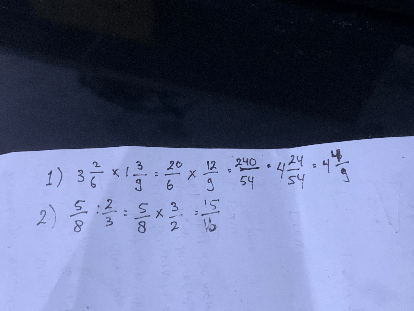 1) 3 2/6 × 1 3/9 = 20/6 × 12/9 = 240/54 = 4 24/54 = 4 4/9
2) 5/8 : 2/3 = 5/8 × 3/2 = 15/16